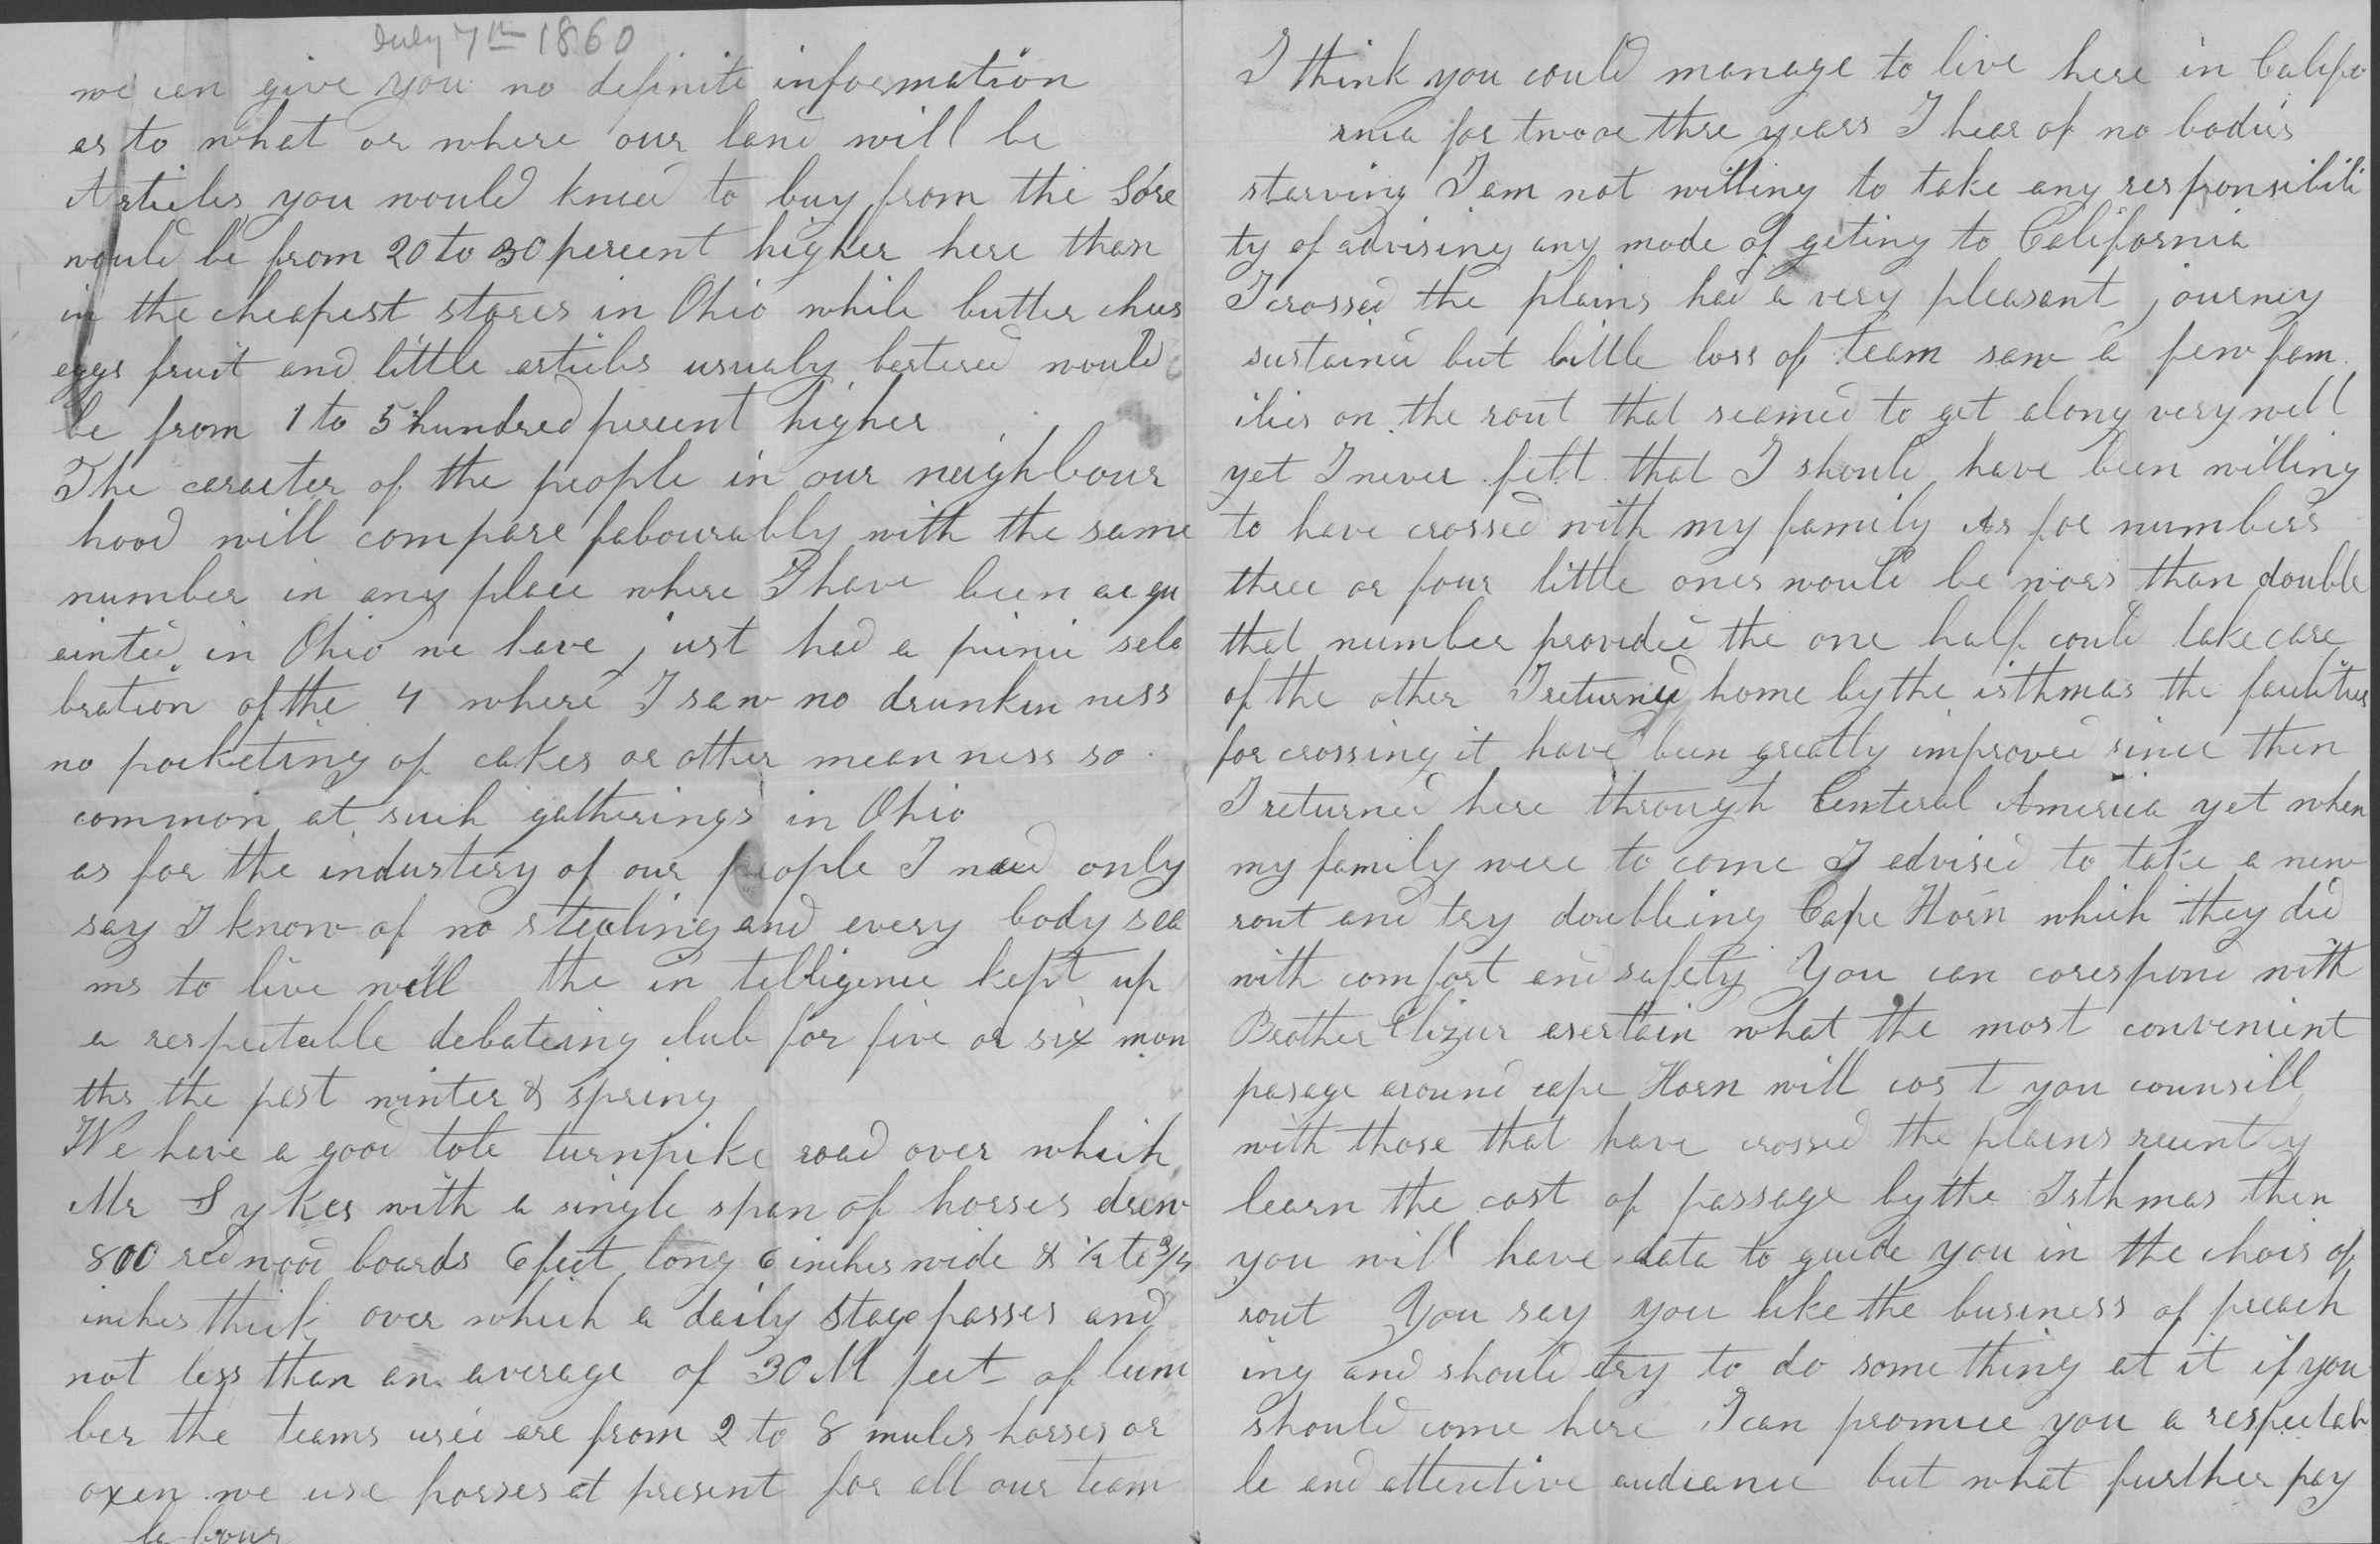 July 7th 1860
we can give you no definite information
as to what or where our land will be
Articles you would kneed to buy from the Store
would be from 20 to 30 percent higher here than
in the cheapest stores in Ohio while butter chees
eggs fruit and little articles usualy bartered would
be from 1 to 5 hundred percent higher
The caracter of the people in our neighbour
hood will compare fabourably with the same
number in any place where I have been acqu
ainted in Ohio we have just had a picnic sela
bration of the 4 where I saw no drunkin ness
no pocketing of cakes or other mean ness so
common at such gatherings in Ohio
as for the industery of our people I need only
say I know of no stealing and every body see
ms to live well the in telligence kept up
a respectable debateing club for five or six mon
ths the past winter & spring
We have a good tole turnpike road over which
Mr Sykes with a single span of horses drew
800 redwood boards 6 feet long 6 inches wide & 1/2 to 3/4
inches thick over which a daily stage passes and
not less than an average of 30 M feet of lum
ber the teams used are from 2 to 8 mules horses or
oxen we use horses at present for all our team
labour
I think you could manage to live here in Califo
rnia for two or thre years I hear of no bodies
starving I am not willing to take any responsibili
ty of advising any mode of geting to California
I crossed the plains had a very pleasant journey
sustained but little loss of team saw a few fam
ilies on the rout that seamed to get along very well
yet I never felt that I should have been willing
to have crossed with my family As for numbers
three or four little ones would be wors than double
that number provided the one half could take care
of the other I returned home by the isthmas the facilities
for crossing it have been greatly improved since then
I returned here through Centeral America yet when
my family were to come I advised to take a new
rout and try doubleing Cape Horn which they did
with comfort and safety You can corespond with
Brother Elizur asertain what the most convenient
pasage around cape Horn will cost you counsill
with those that have crossed the plains recently
learn the cost of passage by the Isthmas then
you will have data to guide you in the chois of
rout You say you like the business of preach
ing and should try to do something at it if you
should come here I can promice you a respectab
le and attentive audiance but what further pay